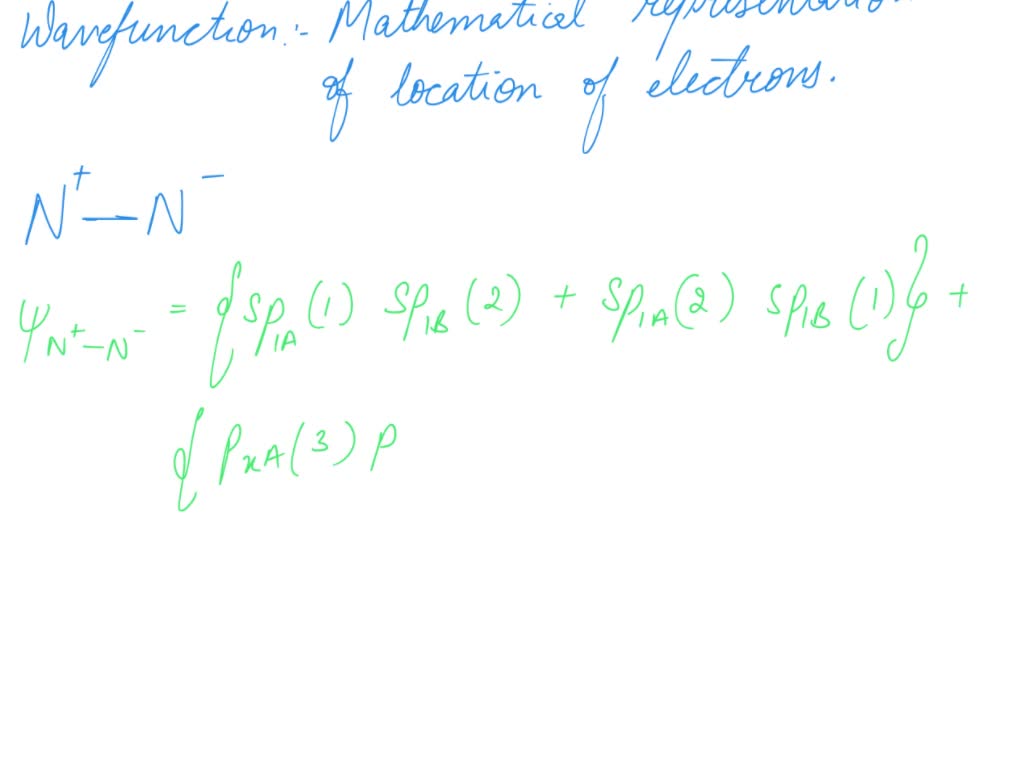 Wavefunction:- Mathematical representation
of location of electrons.
N⁺—N⁻
ψ_{N⁺—N⁻} = {sp_{1A}(1) sp_{1B}(2) + sp_{1A}(2) sp_{1B}(1)} +
{P_{xA}(3) P